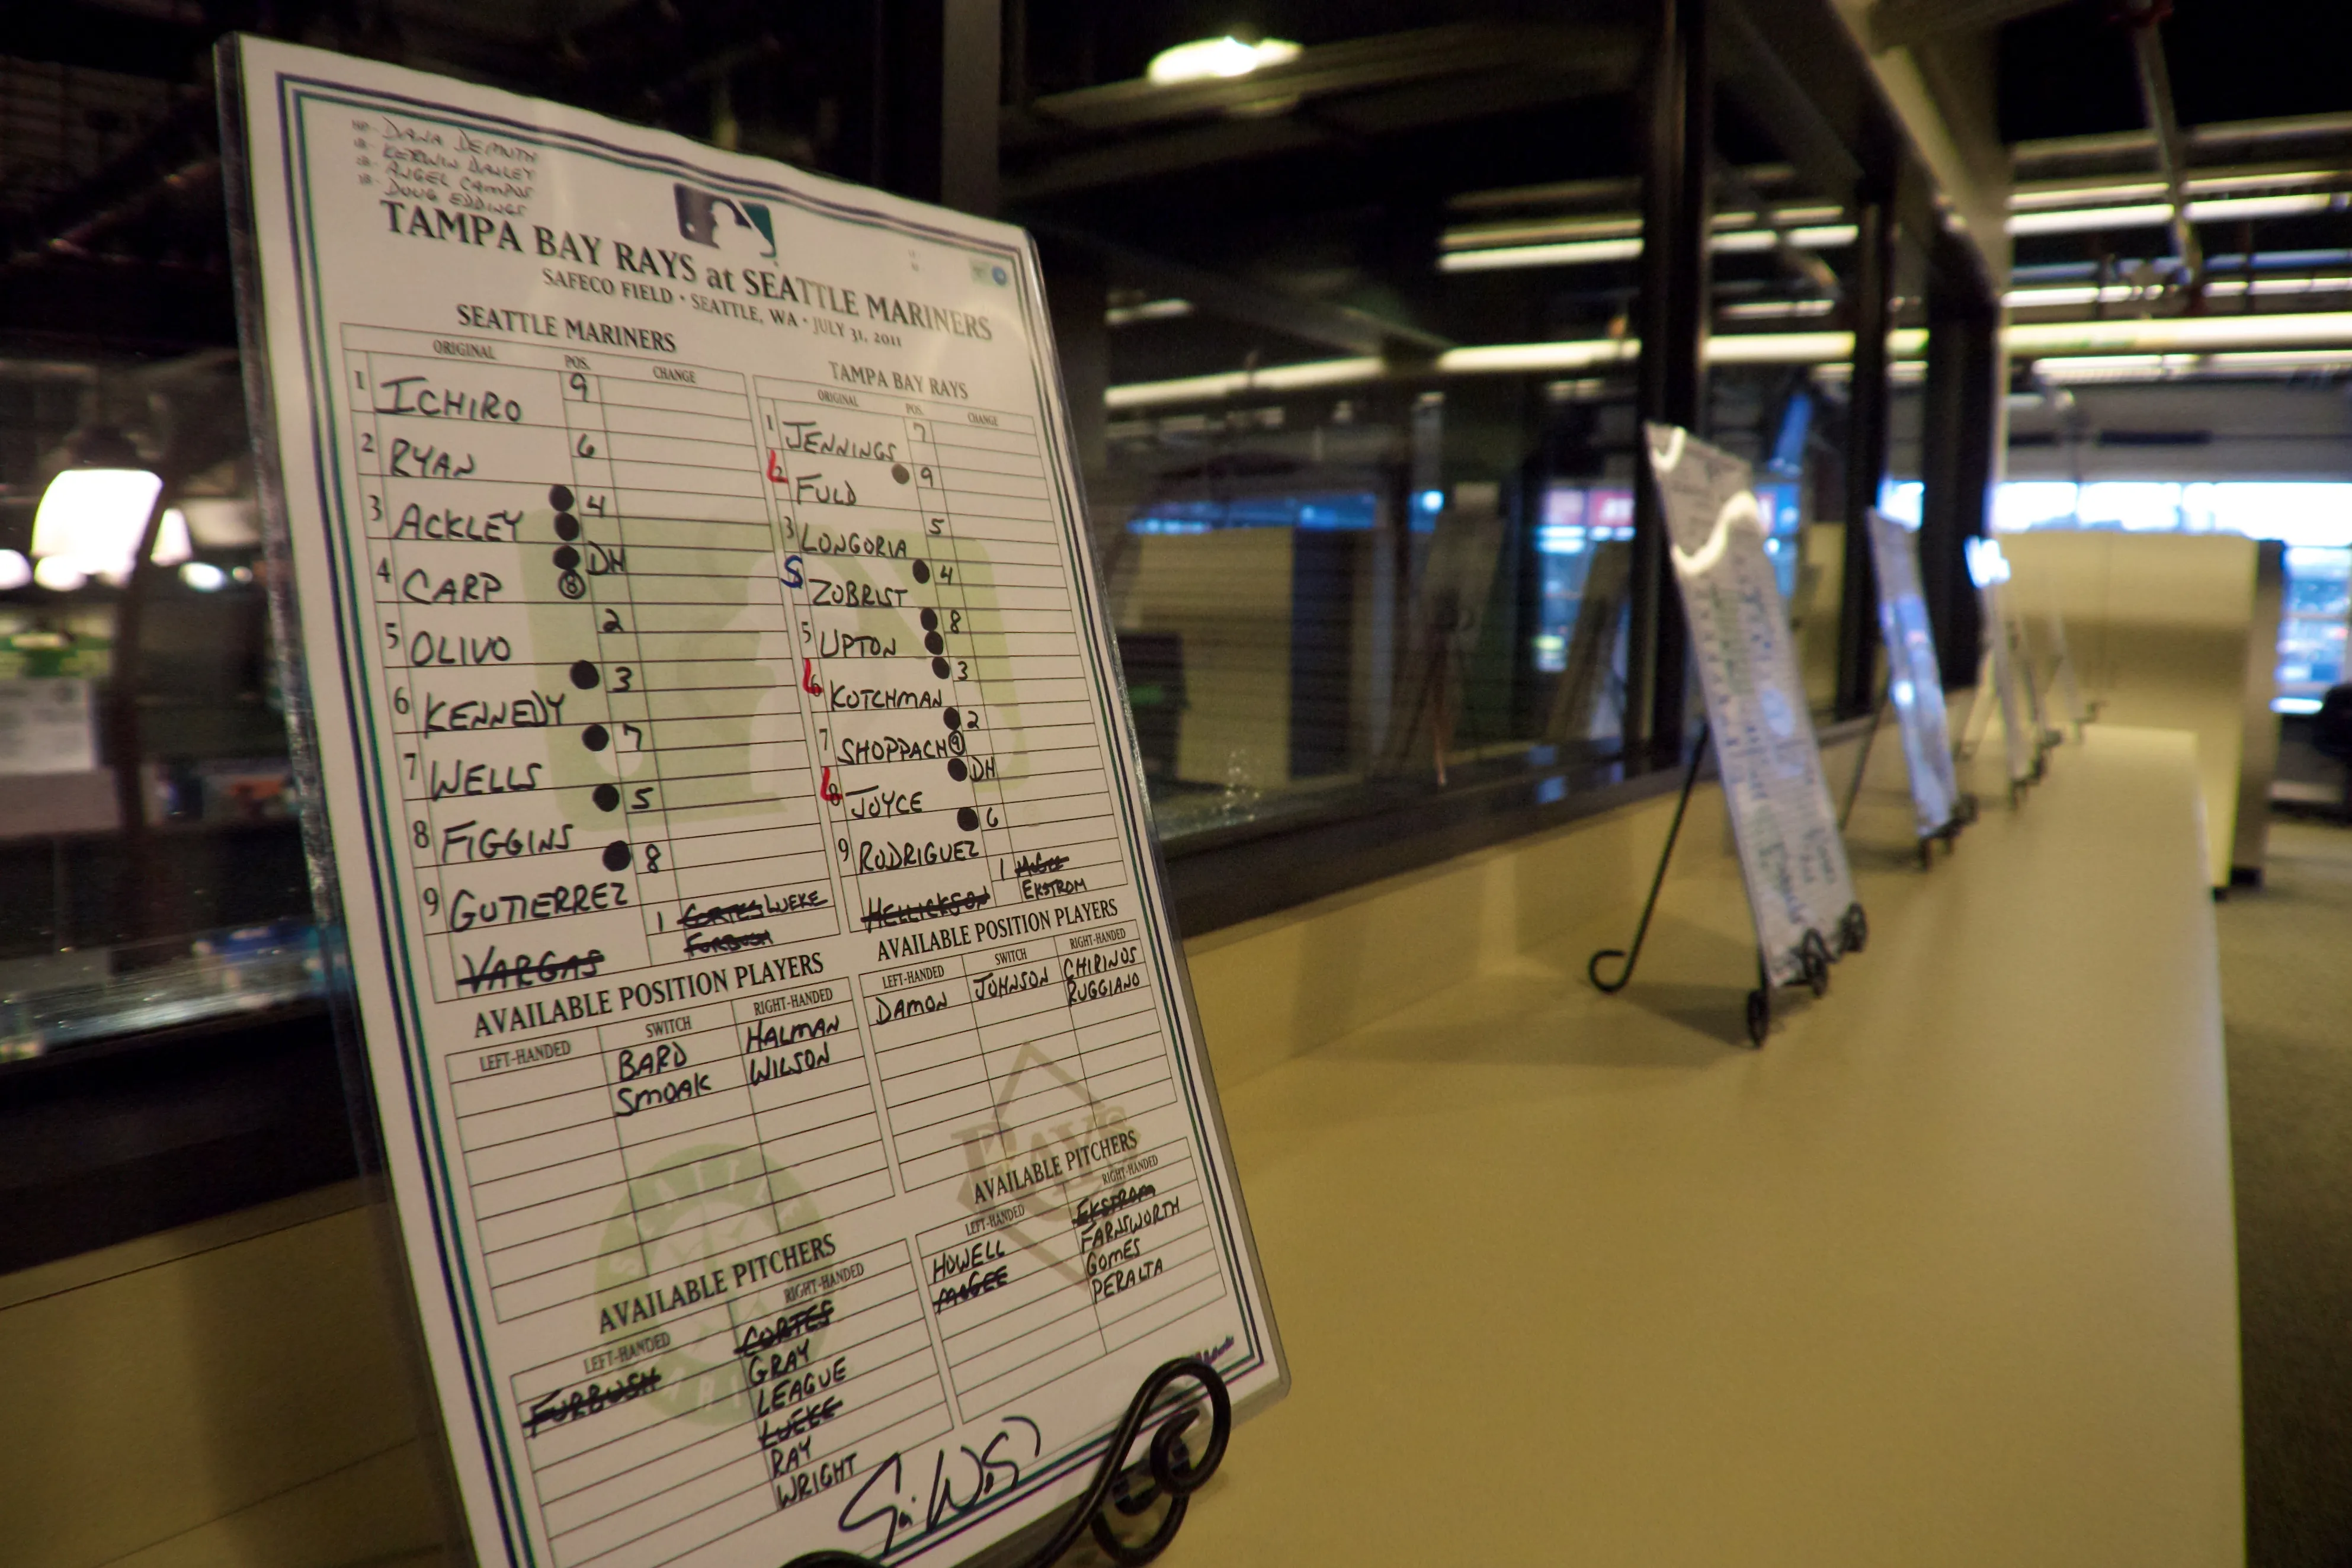 HP- DANA DEMUTH
1B- KERWIN DANLEY
2B- ANGEL CAMPOS
3B- DOUG EDDINGS
TAMPA BAY RAYS at SEATTLE MARINERS
SAFECO FIELD • SEATTLE, WA • JULY 31, 2011
SEATTLE MARINERS
ORIGINAL POS. CHANGE
1 ICHIRO 9
2 RYAN 6
3 ACKLEY 4
4 CARP DH 8
5 OLIVO 2
6 KENNEDY 3
7 WELLS 7
8 FIGGINS 5
9 GUTIERREZ 8
VARGAS 1 CORTES LUEKE
FURBUSH
TAMPA BAY RAYS
ORIGINAL POS. CHANGE
1 JENNINGS 7
L 2 FULD 9
3 LONGORIA 5
S ZOBRIST 4
5 UPTON 8
L 6 KOTCHMAN 3
7 SHOPPACH 9 2
L 8 JOYCE DH
9 RODRIGUEZ 6
HELLICKSON 1 McGEE
EKSTROM
AVAILABLE POSITION PLAYERS
LEFT-HANDED SWITCH RIGHT-HANDED
BARD HALMAN
SMOAK WILSON
AVAILABLE POSITION PLAYERS
LEFT-HANDED SWITCH RIGHT-HANDED
DAMON JOHNSON CHIRINOS
RUGGIANO
AVAILABLE PITCHERS
LEFT-HANDED RIGHT-HANDED
FURBUSH CORTES
GRAY
LEAGUE
LUEKE
RAY
WRIGHT
RAYS
AVAILABLE PITCHERS
LEFT-HANDED RIGHT-HANDED
HOWELL EKSTROM
McGEE FARNSWORTH
GOMES
PERALTA